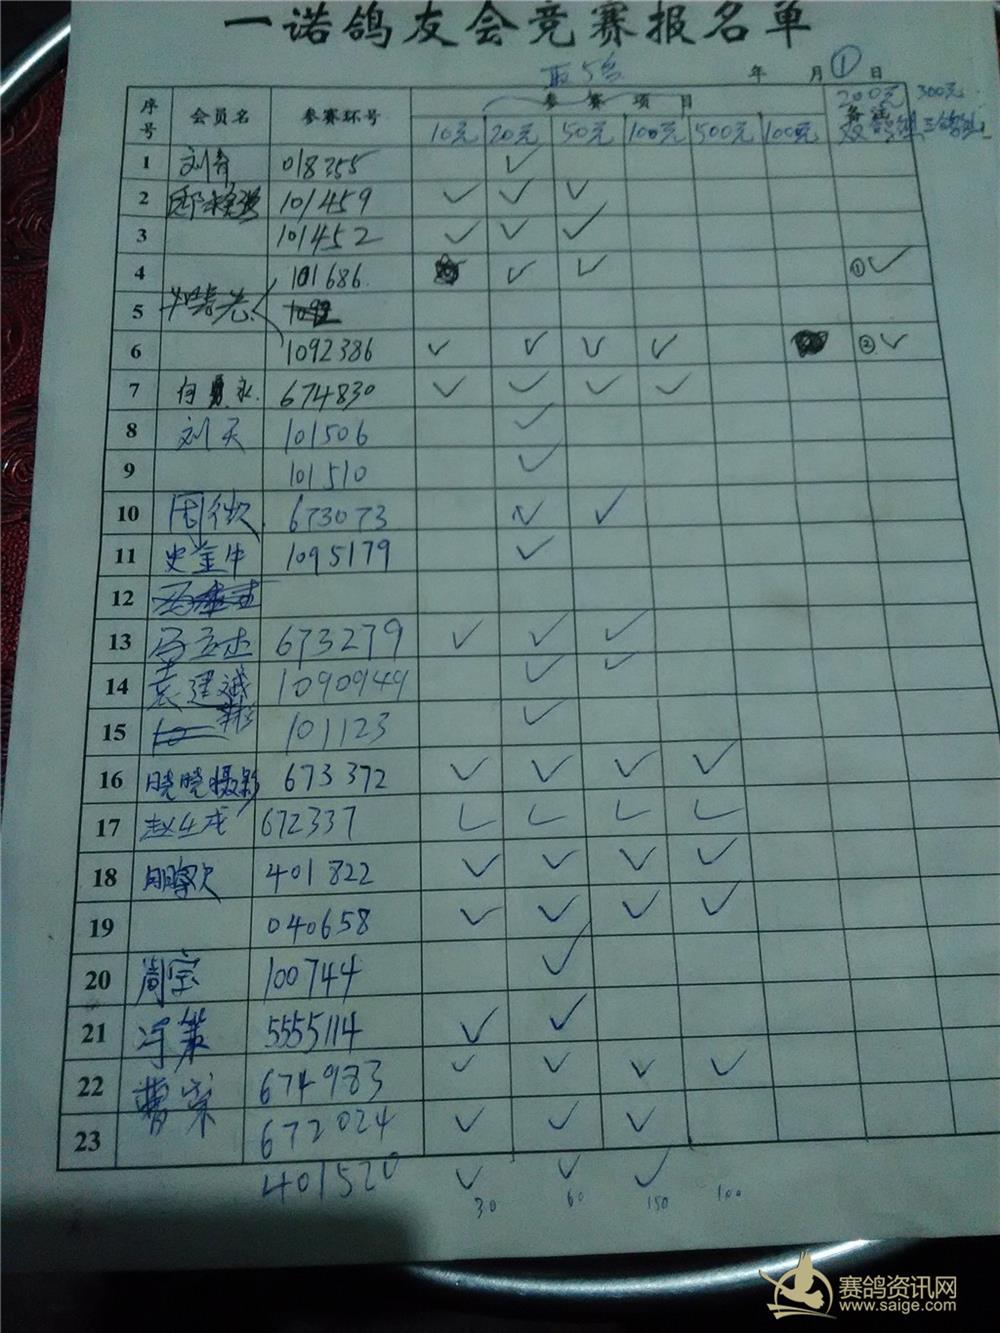 一诺鸽友会竞赛报名单
取5名 年 月 ① 日
序号 会员名 参赛环号 参赛项目 200元 备注 300元
10元 20元 50元 100元 500元 1000元 双鸽组 三鸽组
1 刘青 018355 ✓
2 101459 ✓ ✓ ✓
3 101452 ✓ ✓ ✓
4 101686 ✓ ✓ ①✓
5
6 1092386 ✓ ✓ ✓ ✓ ②✓
7 何勇永 674830 ✓ ✓ ✓ ✓
8 刘天 101506 ✓
9 101510 ✓
10 周微 673073 ✓ ✓
11 史金牛 1095179 ✓
12
13 马立杰 673279 ✓ ✓ ✓
14 袁建诚 1090949 ✓ ✓
15 101123 ✓
16 晓晓摄影 673372 ✓ ✓ ✓ ✓
17 672337 ✓ ✓ ✓ ✓
18 401822 ✓ ✓ ✓ ✓
19 040658 ✓ ✓ ✓ ✓
20 100744 ✓
21 冯策 5555114 ✓ ✓
22 曹崇 674983 ✓ ✓ ✓ ✓
23 672024 ✓ ✓ ✓
401520 ✓ ✓ ✓
30 60 150 100
赛鸽资讯网
www.saige.com